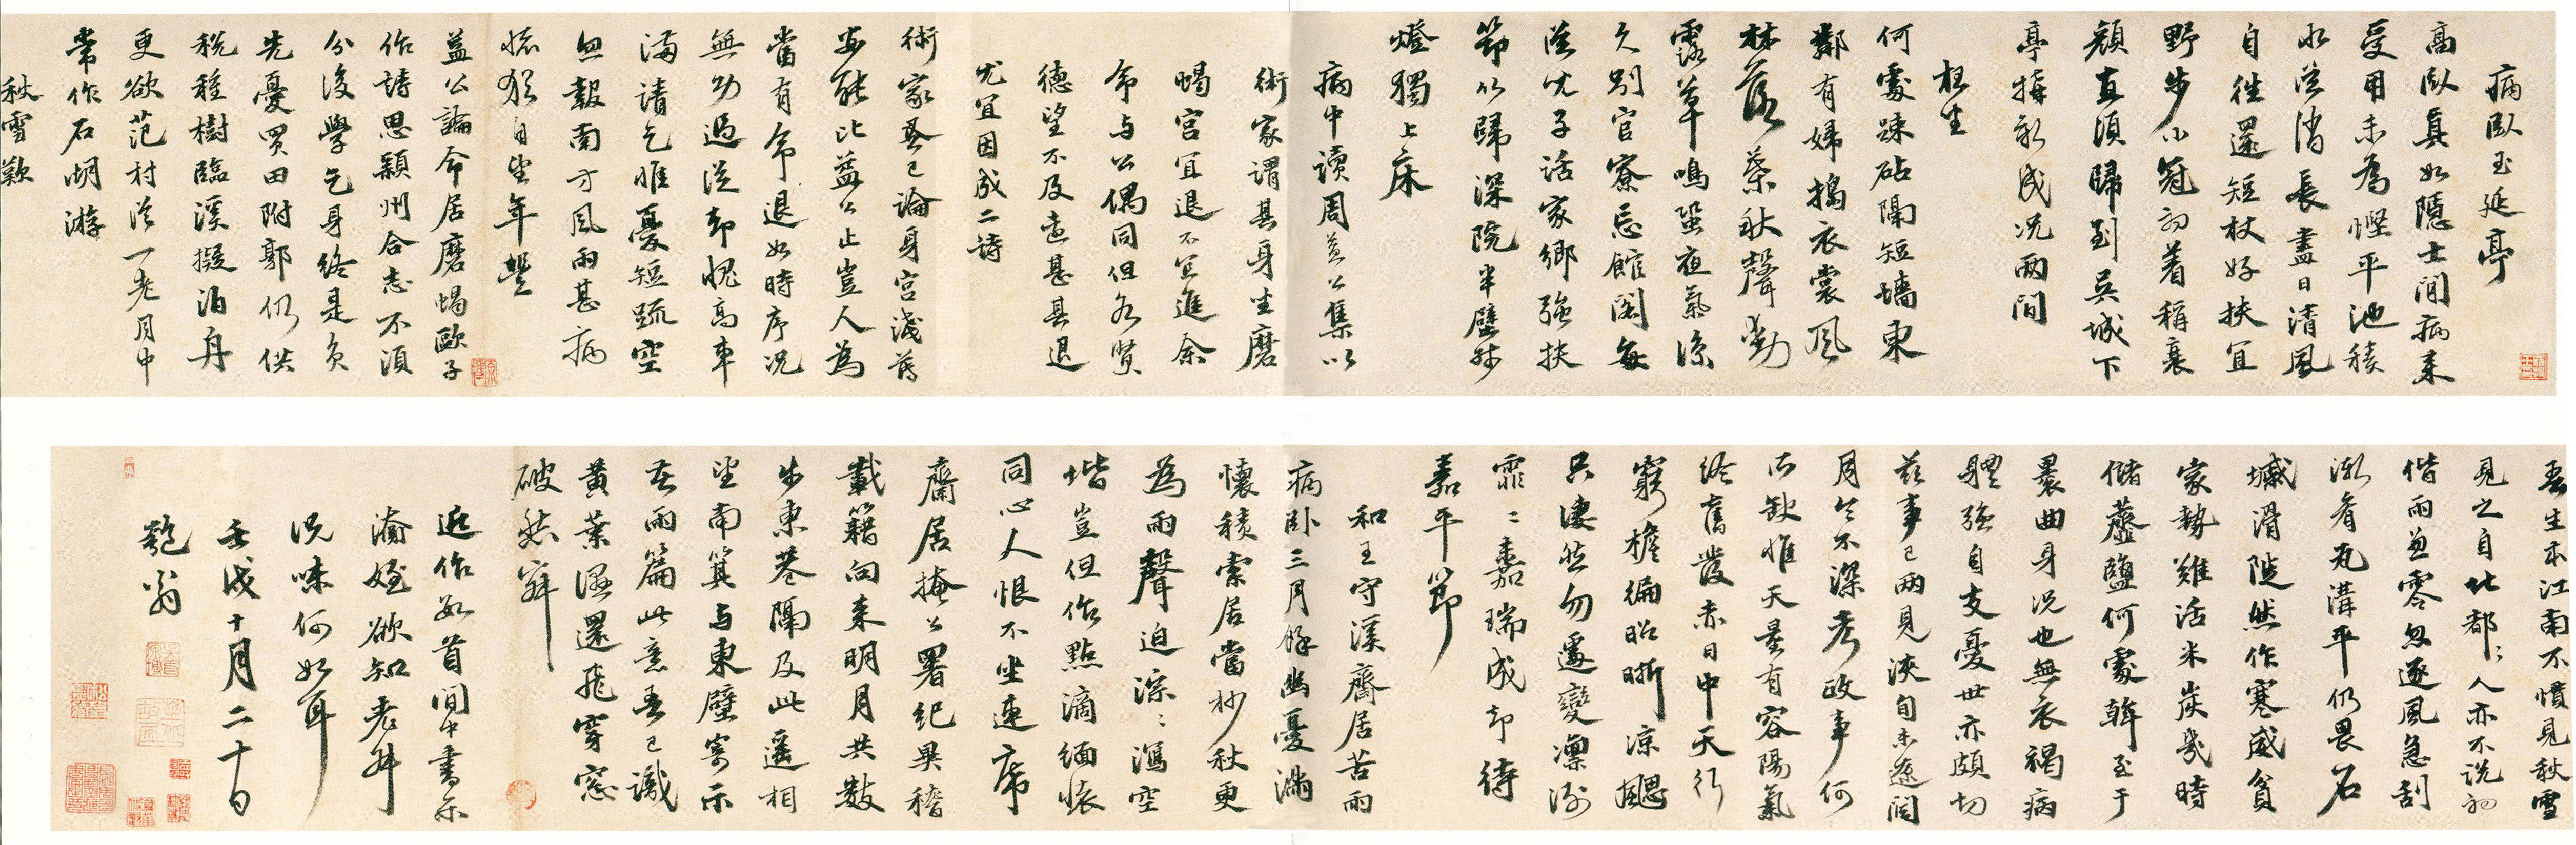 病臥玉延亭
高臥真如隱士閒病來
受用未為慳平池積
水從清長盡日清風
自往還短杖好扶宜
野步小冠初著稱衰
顏直須歸到吳城下
亭榜新成況兩間
枉坐
何處疎砧隔短墻東
鄰有婦搗衣裳風
林落葉秋聲勁
露草鳴蛩夜氣涼
久別官寮忘館閣每
從兒子話家鄉強扶
笻竹歸深院半壁殘
燈獨上床
病中讀周益公集以
術家謂其身坐磨
蝎宮宜退不宜進余
命與公偶同但名賢
德望不及遠甚其退
尤宜因成二詩
術家吾已論身宮淺薄
安能比益公止豈人為
當有命退如時序況
無功過從却愧高車
滿請乞惟憂短疏空
忽報南方風雨甚病
懷猶自望年豐
益公論命居磨蝎歐子
作詩思潁州合志不須
分後學乞身終是負
先憂買田附郭仍供
稅種樹臨溪擬泊舟
更欲范村從一老月中
常作石湖游
秋雪歎
吾生本江南不慣見秋雪
見之自北都都人亦不說初
偕雨並零忽逐風急刮
漸看瓦溝平仍畏石
墄滑陡然作寒威貧
家勢難活米炭幾時
儲虀鹽何處斡至于
裹曲身況也無衣褐病
體強自支憂世亦頗切
茲事已兩見浹旬未遼闊
月令不深考政事何
所缺惟天量有容陽氣
終舊發赤日中天行
窮檐徧昭晰涼颸
只淒然勿遽變凜冽
霏霏嘉瑞成却待
嘉平節
和王守溪齋居苦雨
病卧三月餘幽憂滿
懷積索居當杪秋更
為雨聲迫淙淙瀉空
堦豈但作點滴緬懷
同心人恨不坐連席
齋居掩公署紀異稽
載籍向來明月共數
步東巷隔及此遥相
望南箕與東壁寄示
苦雨篇此意吾已識
黃葉濕還飛穿窓
破愁寂
近作數首閒中書示
瀹姪欲知老舛
況味何如耳
壬戌十月二十日
匏翁